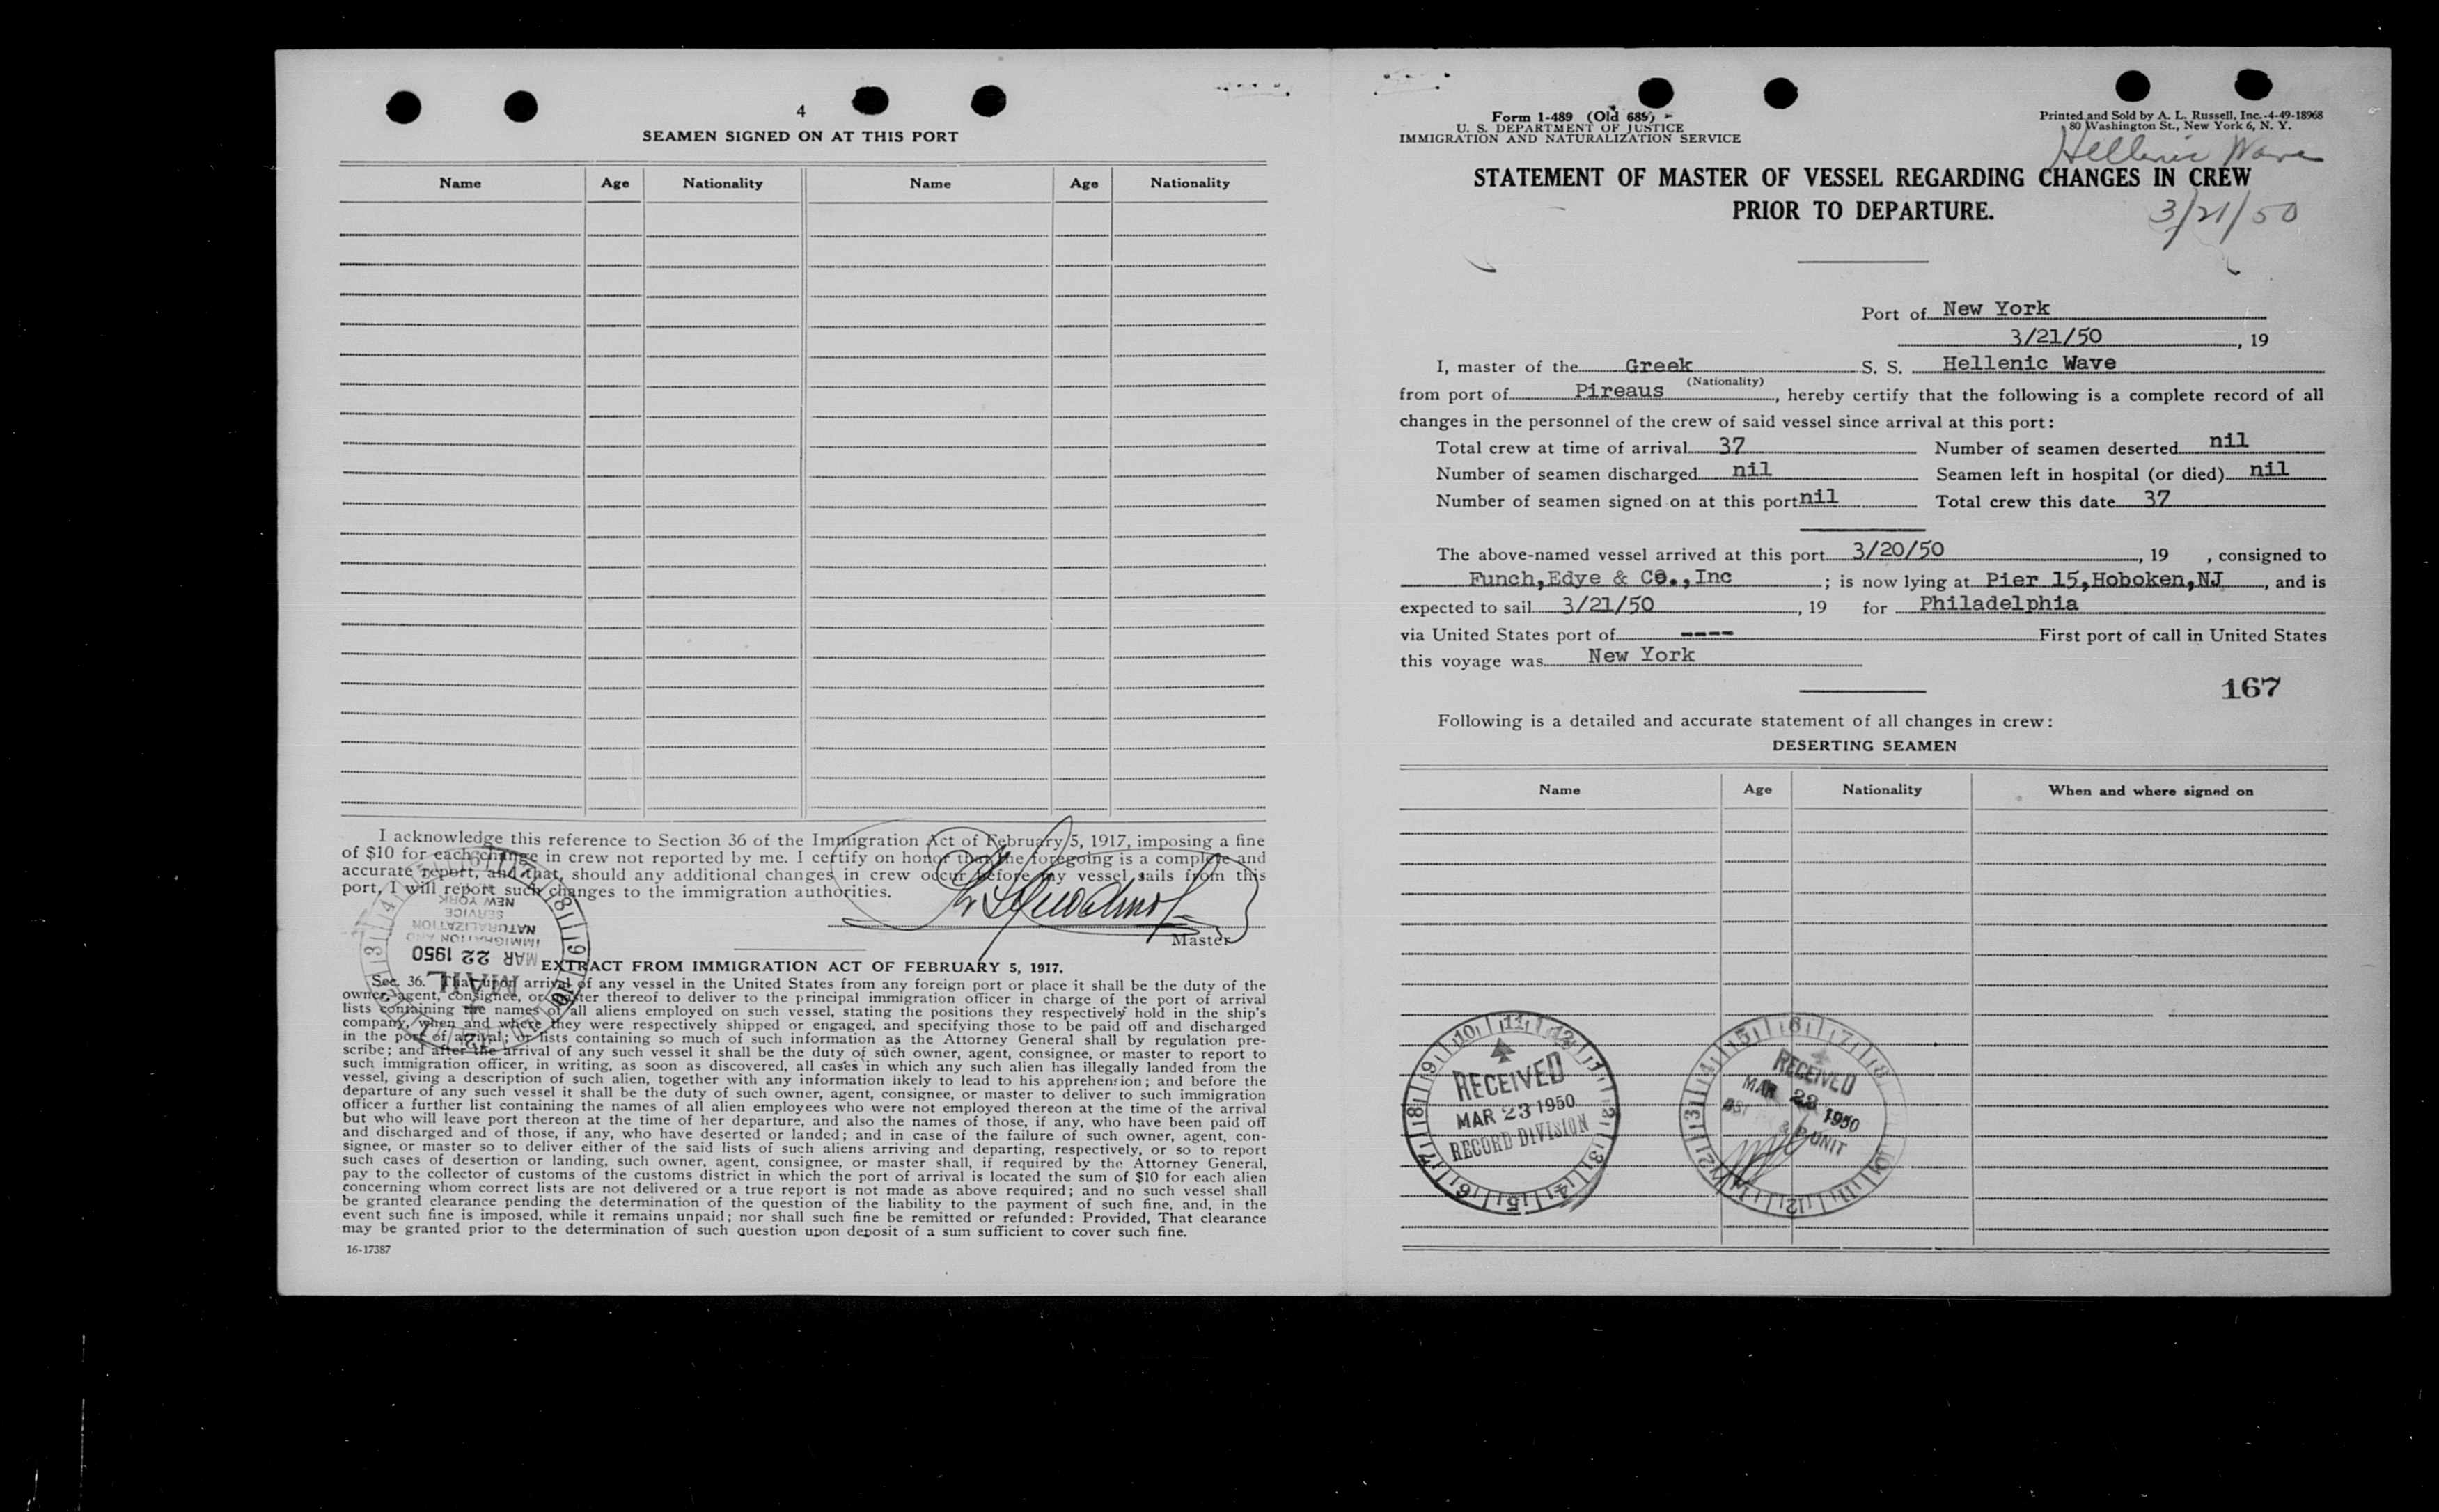 4
SEAMEN SIGNED ON AT THIS PORT
Name Age Nationality Name Age Nationality
I acknowledge this reference to Section 36 of the Immigration Act of February 5, 1917, imposing a fine
of $10 for each change in crew not reported by me. I certify on honor that the foregoing is a complete and
accurate report, and that, should any additional changes in crew occur before my vessel sails from this
port, I will report such changes to the immigration authorities.
Master
NEW YORK
SERVICE
NATURALIZATION
IMMIGRATION AND
MAR 22 1950
MAIL
EXTRACT FROM IMMIGRATION ACT OF FEBRUARY 5, 1917.
Sec. 36. That upon arrival of any vessel in the United States from any foreign port or place it shall be the duty of the
owner, agent, consignee, or master thereof to deliver to the principal immigration officer in charge of the port of arrival
lists containing the names of all aliens employed on such vessel, stating the positions they respectively hold in the ship's
company, when and where they were respectively shipped or engaged, and specifying those to be paid off and discharged
in the port of arrival; or lists containing so much of such information as the Attorney General shall by regulation pre-
scribe; and after the arrival of any such vessel it shall be the duty of such owner, agent, consignee, or master to report to
such immigration officer, in writing, as soon as discovered, all cases in which any such alien has illegally landed from the
vessel, giving a description of such alien, together with any information likely to lead to his apprehension; and before the
departure of any such vessel it shall be the duty of such owner, agent, consignee, or master to deliver to such immigration
officer a further list containing the names of all alien employees who were not employed thereon at the time of the arrival
but who will leave port thereon at the time of her departure, and also the names of those, if any, who have been paid off
and discharged and of those, if any, who have deserted or landed; and in case of the failure of such owner, agent, con-
signee, or master so to deliver either of the said lists of such aliens arriving and departing, respectively, or so to report
such cases of desertion or landing, such owner, agent, consignee, or master shall, if required by the Attorney General,
pay to the collector of customs of the customs district in which the port of arrival is located the sum of $10 for each alien
concerning whom correct lists are not delivered or a true report is not made as above required; and no such vessel shall
be granted clearance pending the determination of the question of the liability to the payment of such fine, and, in the
event such fine is imposed, while it remains unpaid; nor shall such fine be remitted or refunded: Provided, That clearance
may be granted prior to the determination of such question upon deposit of a sum sufficient to cover such fine.
16-17387
Form 1-489 (Old 689)
U. S. DEPARTMENT OF JUSTICE
IMMIGRATION AND NATURALIZATION SERVICE
Printed and Sold by A. L. Russell, Inc.-4-49-18968
80 Washington St., New York 6, N. Y.
Hellenic Wave
STATEMENT OF MASTER OF VESSEL REGARDING CHANGES IN CREW
PRIOR TO DEPARTURE.
3/21/50
Port of New York
3/21/50, 19
I, master of the Greek S. S. Hellenic Wave
(Nationality)
from port of Pireaus, hereby certify that the following is a complete record of all
changes in the personnel of the crew of said vessel since arrival at this port:
Total crew at time of arrival 37 Number of seamen deserted nil
Number of seamen discharged nil Seamen left in hospital (or died) nil
Number of seamen signed on at this port nil Total crew this date 37
The above-named vessel arrived at this port 3/20/50, 19 , consigned to
Funch,Edye & CO.,Inc ; is now lying at Pier 15,Hoboken,NJ, and is
expected to sail 3/21/50, 19 for Philadelphia
via United States port of ---- First port of call in United States
this voyage was New York
167
Following is a detailed and accurate statement of all changes in crew:
DESERTING SEAMEN
Name Age Nationality When and where signed on
RECEIVED
MAR 23 1950
RECORD DIVISION
RECEIVED
MAR 23 1950
UNIT